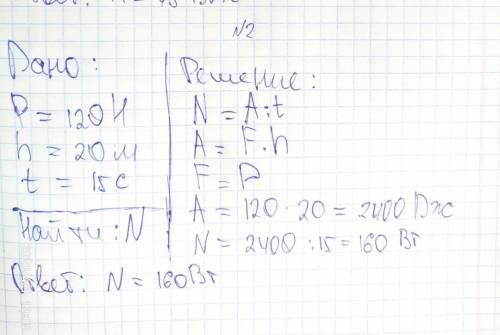 №2
Дано:
P = 120Н
h = 20м
t = 15с
Найти: N
Решение:
N = A:t
A = F·h
F = P
A = 120 · 20 = 2400 Дж
N = 2400 : 15 = 160 Вт
Ответ: N = 160Вт